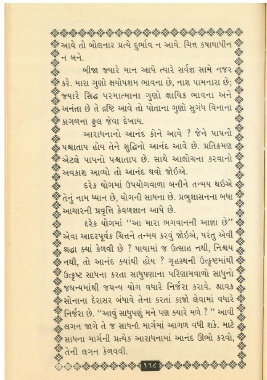 આવે તો બોલનાર પ્રત્યે દુર્ભાવ ન આવે. ચિત્ત કષાયાધીન
ન બને.
બીજા જ્યારે માન આપે ત્યારે સર્વજ્ઞ સામે નજર
કરે. મારા ગુણો ક્ષયોપશમ ભાવના છે, નાશ પામનારા છે;
જ્યારે સિદ્ધ પરમાત્માના ગુણો ક્ષાયિક ભાવના અને
અનંતા છે તે દ્રષ્ટિ આવે તો પોતાના ગુણો સુગંધ વિનાના
કાગળના ફુલ જેવા દેખાય.
આરાધનાનો આનંદ કોને આવે ? જેને પાપનો
પશ્ચાતાપ હોય તેને શુદ્ધિનો આનંદ આવે. પ્રતિક્રમણ
એટલે પાપનો પશ્ચાતાપ છે. સાથે આલોચના કરવાનો
અવકાશ મળ્યો તો આનંદ થવો જોઈએ.
દરેક યોગમાં ઉપયોગવાળા બનીને તન્મય થઇએ
તેનું નામ ધ્યાન છે, યોગની સાધના છે. પ્રભુશાસનના બધા
આચારની પ્રવૃત્તિ કેવળજ્ઞાન આપે છે.
દરેક યોગમાં "આ મારા ભગવાનની આજ્ઞા છે"
એવા આદરપૂર્વક ચિત્તને તન્મય કરવું જોઈએ, પરંતુ એવી
શ્રદ્ધા ક્યાં કેળવી છે ? પાયામાં જ ઉત્સાહ નથી, નિશ્ચય
નથી, તો આનંદ ક્યાંથી હોય ? ગૃહસ્થની ઉત્કૃષ્ટમાંથી
ઉત્કૃષ્ટ સાધના કરતા સાધુપણાના પરિણામવાળો સાધુનો
જઘન્યમાંથી જઘન્ય યોગ વધારે નિર્જરા કરાવે. શ્રાવક
સોનાના દેરાસર બંધાવે તેના કરતાં કાજો લેવામાં વધારે
નિર્જરા છે. "આવું સાધુપણું મને પણ ક્યારે મળે ? " આવી
લગન જાગે તે જ સાધનાે માર્ગમાં આગળ વધી શકે. માટે
સાધના માર્ગની પ્રત્યેક આરાધનામાં આનંદ ઊભો કરવો,
તેની લગન કેળવવી.
૧૧૮